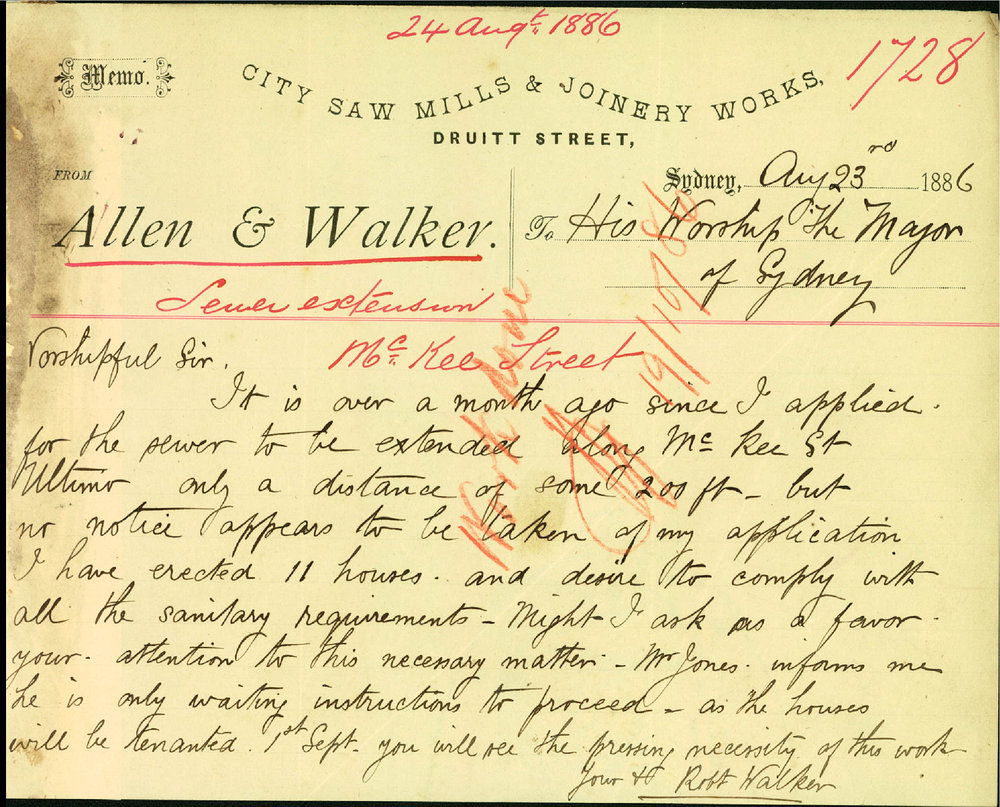 24 Augt. 1886
1728
Memo.
CITY SAW MILLS & JOINERY WORKS,
DRUITT STREET,
FROM
Sydney, Aug 23rd 1886
Allen & Walker.
To His Worship The Mayor
of Sydney
Sewer extension
McKee Street
Work done
19/10/86
Worshipful Sir.
It is over a month ago since I applied.
for the sewer to be extended along McKee St
Ultimo only a distance of some 200 ft - but
no notice appears to be taken of my application
I have erected 11 houses. and desire to comply with
all the sanitary requirements - Might I ask as a favor.
your. attention to this necessary matter. - Mr Jones. informs me
he is only waiting instructions to proceed - as the houses
will be tenanted. 1st Sept. you will see the pressing necessity of this work
Your Robt Walker